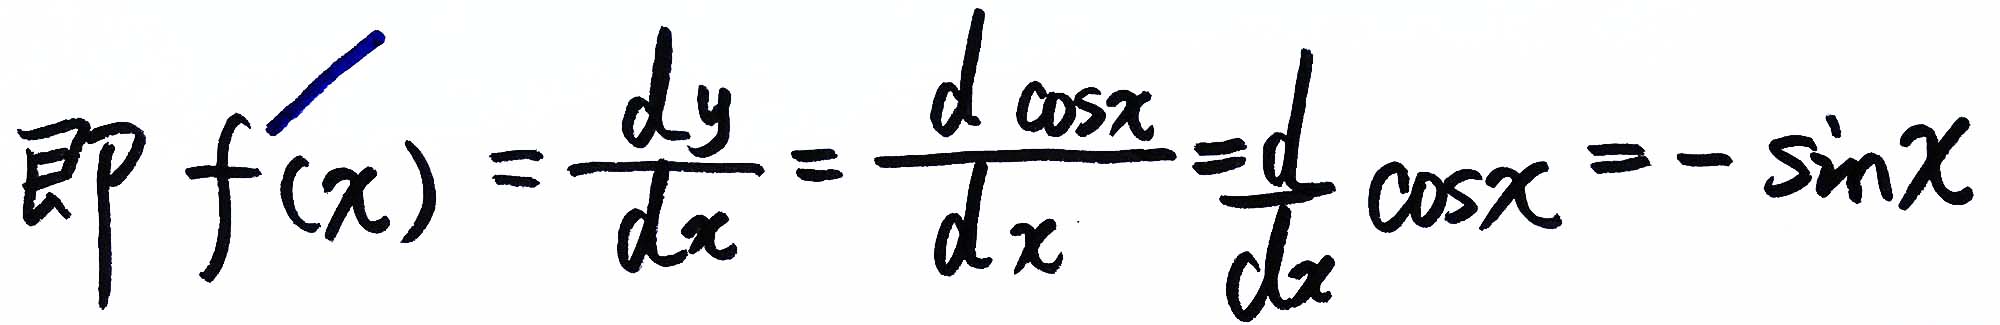 即 f′(x) = dy/dx = d cosx/dx = d/dx cosx = - sinx